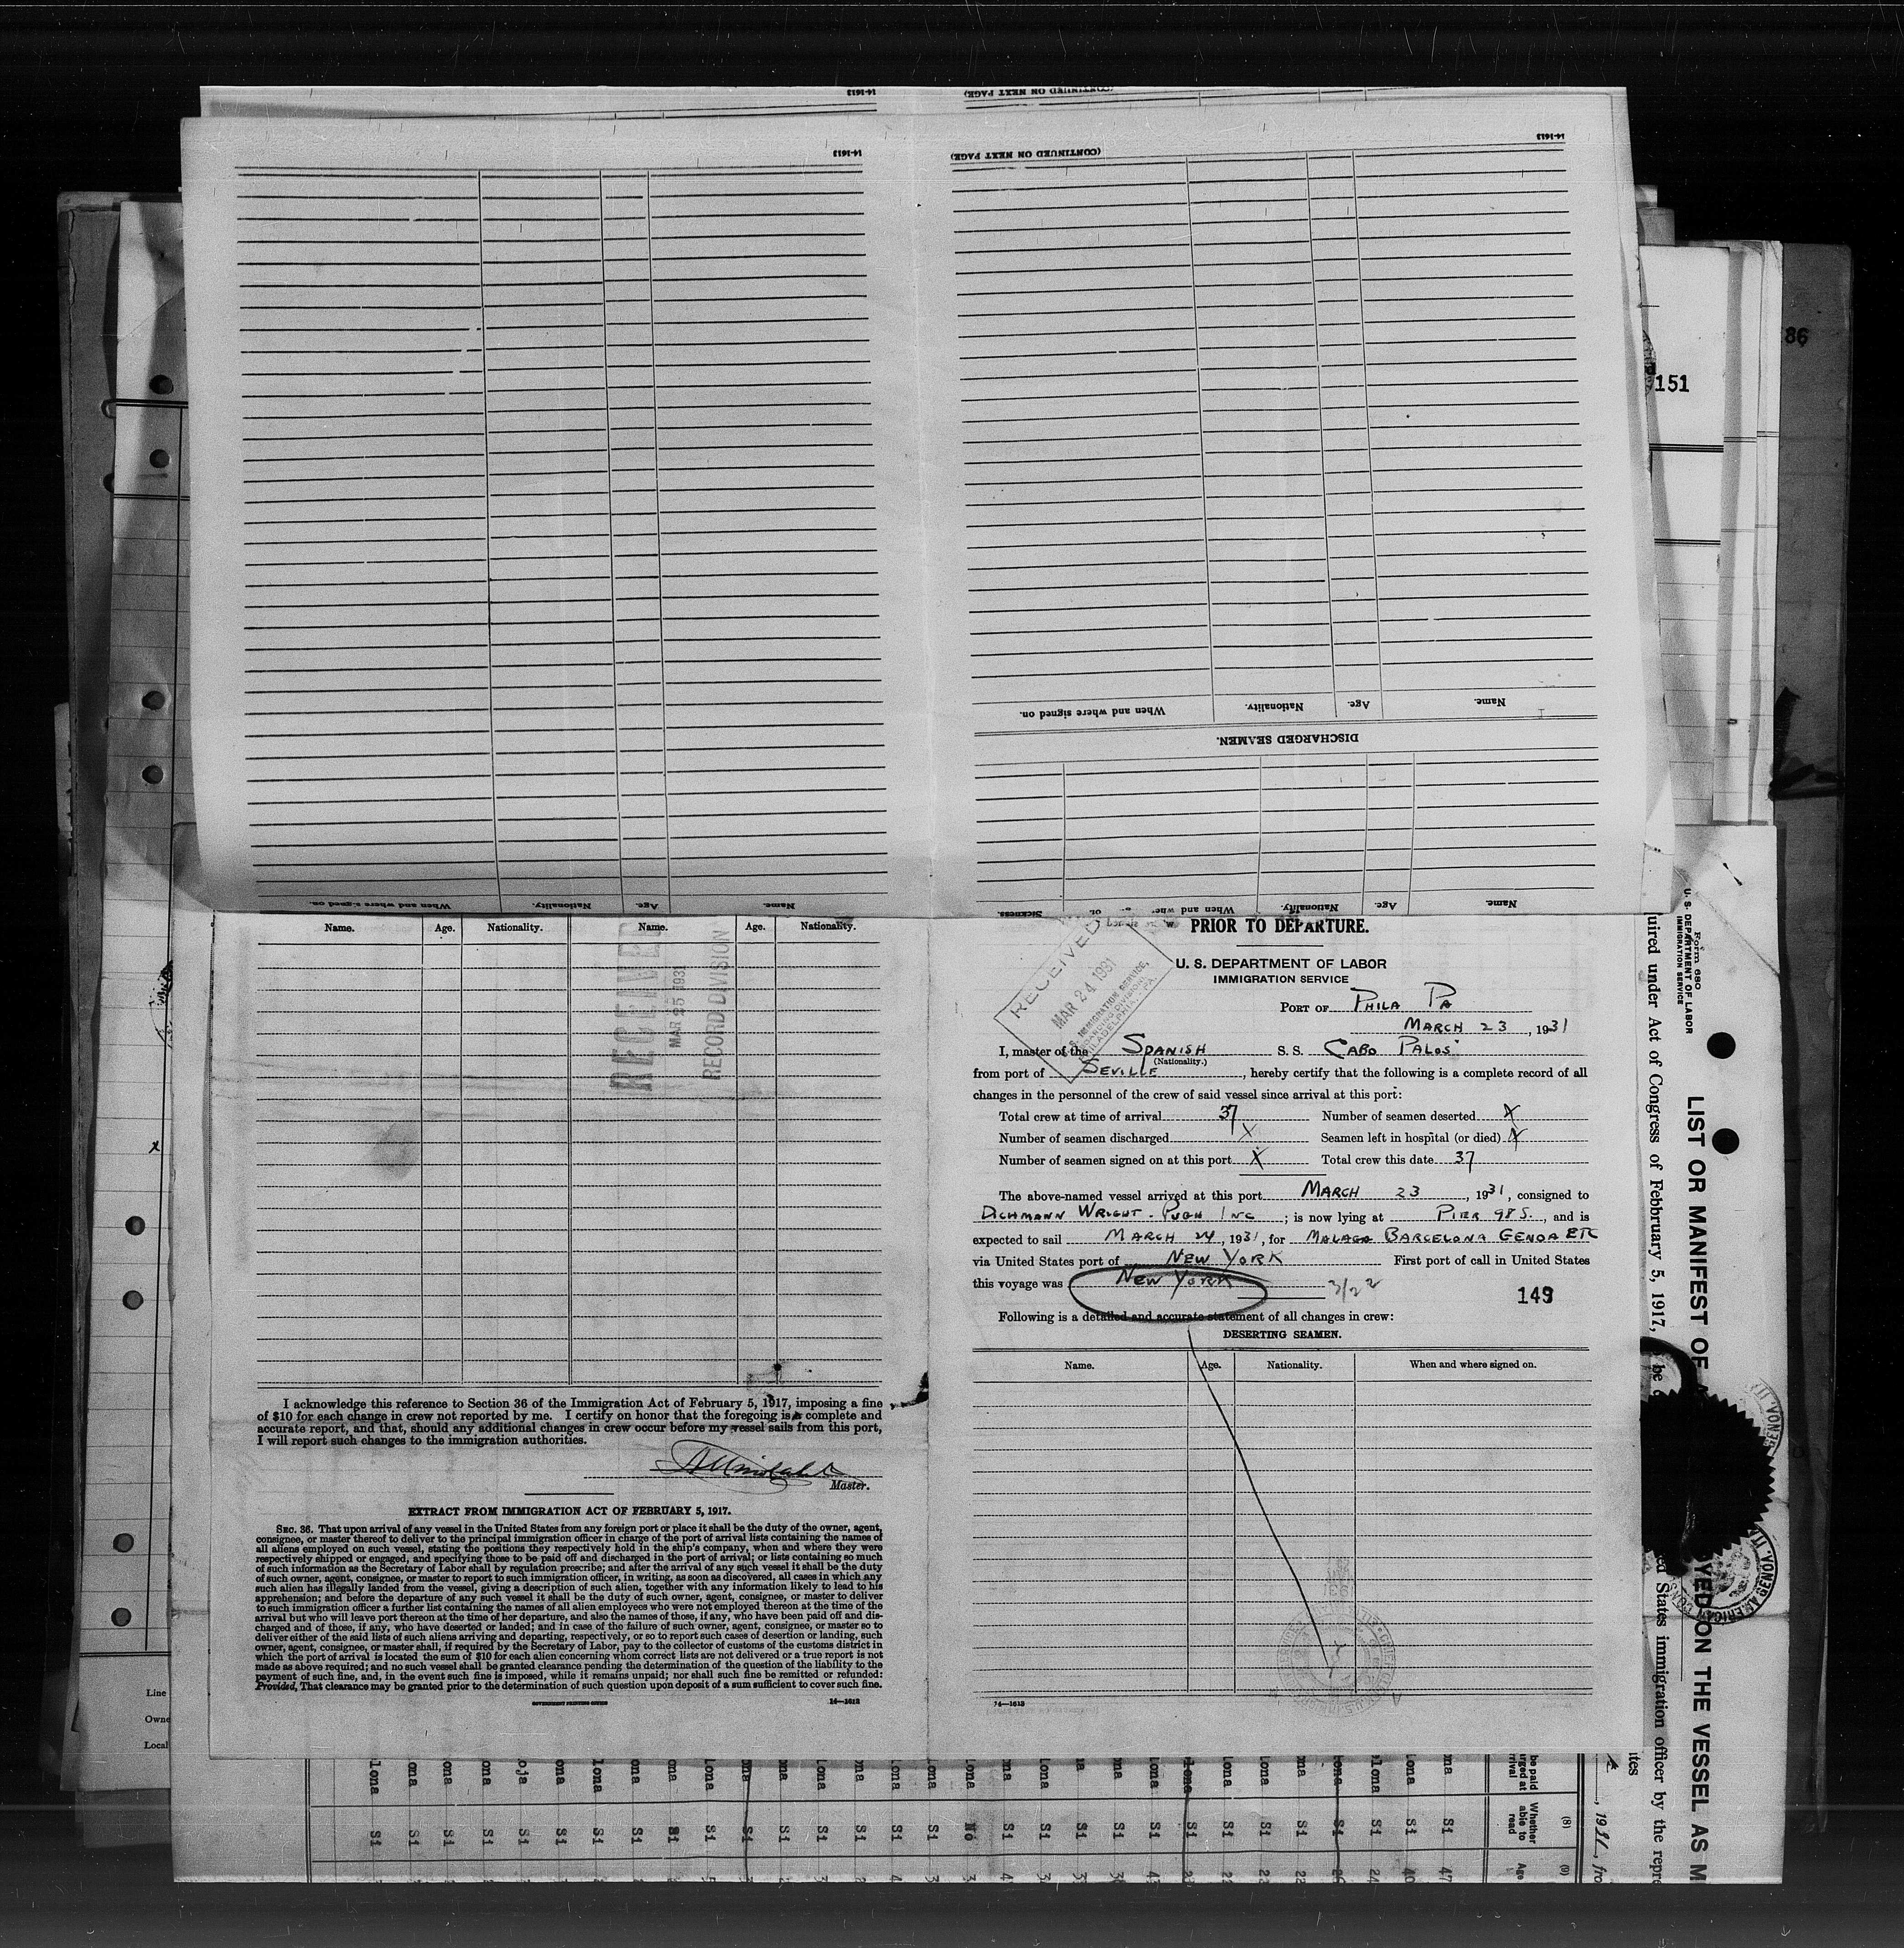 14-1613
(CONTINUED ON NEXT PAGE)
14-1613
14-1613
(CONTINUED ON NEXT PAGE)
86
151
Name. Age. Nationality. When and where signed on.
DISCHARGED SEAMEN.
Name. Age. Nationality. When and where signed on.
Name. Age. Nationality. When and Sickness
Name. Age. Nationality. Name. Age. Nationality.
RECEIVED
MAR 25 1931
RECORD DIVISION
I acknowledge this reference to Section 36 of the Immigration Act of February 5, 1917, imposing a fine
of $10 for each change in crew not reported by me. I certify on honor that the foregoing is a complete and
accurate report, and that, should any additional changes in crew occur before my vessel sails from this port,
I will report such changes to the immigration authorities.
Master.
EXTRACT FROM IMMIGRATION ACT OF FEBRUARY 5, 1917.
SEC. 36. That upon arrival of any vessel in the United States from any foreign port or place it shall be the duty of the owner, agent,
consignee, or master thereof to deliver to the principal immigration officer in charge of the port of arrival lists containing the names of
all aliens employed on such vessel, stating the positions they respectively hold in the ship's company, when and where they were
respectively shipped or engaged, and specifying those to be paid off and discharged in the port of arrival; or lists containing so much
of such information as the Secretary of Labor shall by regulation prescribe; and after the arrival of any such vessel it shall be the duty
of such owner, agent, consignee, or master to report to such immigration officer, in writing, as soon as discovered, all cases in which any
such alien has illegally landed from the vessel, giving a description of such alien, together with any information likely to lead to his
apprehension; and before the departure of any such vessel it shall be the duty of such owner, agent, consignee, or master to deliver
to such immigration officer a further list containing the names of all alien employees who were not employed thereon at the time of the
arrival but who will leave port thereon at the time of her departure, and also the names of those, if any, who have been paid off and dis-
charged and of those, if any, who have deserted or landed; and in case of the failure of such owner, agent, consignee, or master so to
deliver either of the said lists of such aliens arriving and departing, respectively, or so to report such cases of desertion or landing, such
owner, agent, consignee, or master shall, if required by the Secretary of Labor, pay to the collector of customs of the customs district in
which the port of arrival is located the sum of $10 for each alien concerning whom correct lists are not delivered or a true report is not
made as above required; and no such vessel shall be granted clearance pending the determination of the question of the liability to the
payment of such fine, and, in the event such fine is imposed, while it remains unpaid; nor shall such fine be remitted or refunded:
Provided, That clearance may be granted prior to the determination of such question upon deposit of a sum sufficient to cover such fine.
GOVERNMENT PRINTING OFFICE 14—1613
PRIOR TO DEPARTURE.
U. S. DEPARTMENT OF LABOR
IMMIGRATION SERVICE
RECEIVED
MAR 24 1931
U.S. IMMIGRATION SERVICE,
BOARDING DIVISION
PHILADELPHIA, PA.
PORT OF PHILA PA
MARCH 23, 1931
I, master of the SPANISH S. S. CABO PALOS
(Nationality.)
from port of SEVILLE, hereby certify that the following is a complete record of all
changes in the personnel of the crew of said vessel since arrival at this port:
Total crew at time of arrival 37 Number of seamen deserted X
Number of seamen discharged X Seamen left in hospital (or died) X
Number of seamen signed on at this port X Total crew this date 37
The above-named vessel arrived at this port MARCH 23, 1931, consigned to
DICHMANN WRIGHT. PUGH INC; is now lying at PIER 98 S., and is
expected to sail MARCH 24, 1931, for MALAGA BARCELONA GENOA ETC
via United States port of NEW YORK First port of call in United States
this voyage was NEW YORK 3/22
149
Following is a detailed and accurate statement of all changes in crew:
DESERTING SEAMEN.
Name. Age. Nationality. When and where signed on.
14—1613
Form 680
U. S. DEPARTMENT OF LABOR
IMMIGRATION SERVICE
LIST OR MANIFEST OF
OYED ON THE VESSEL AS M
uired under Act of February 5, 1917,
ed States immigration officer by the repre
Line
Owne
Local
Whether able to read
Age
(8)
(9)